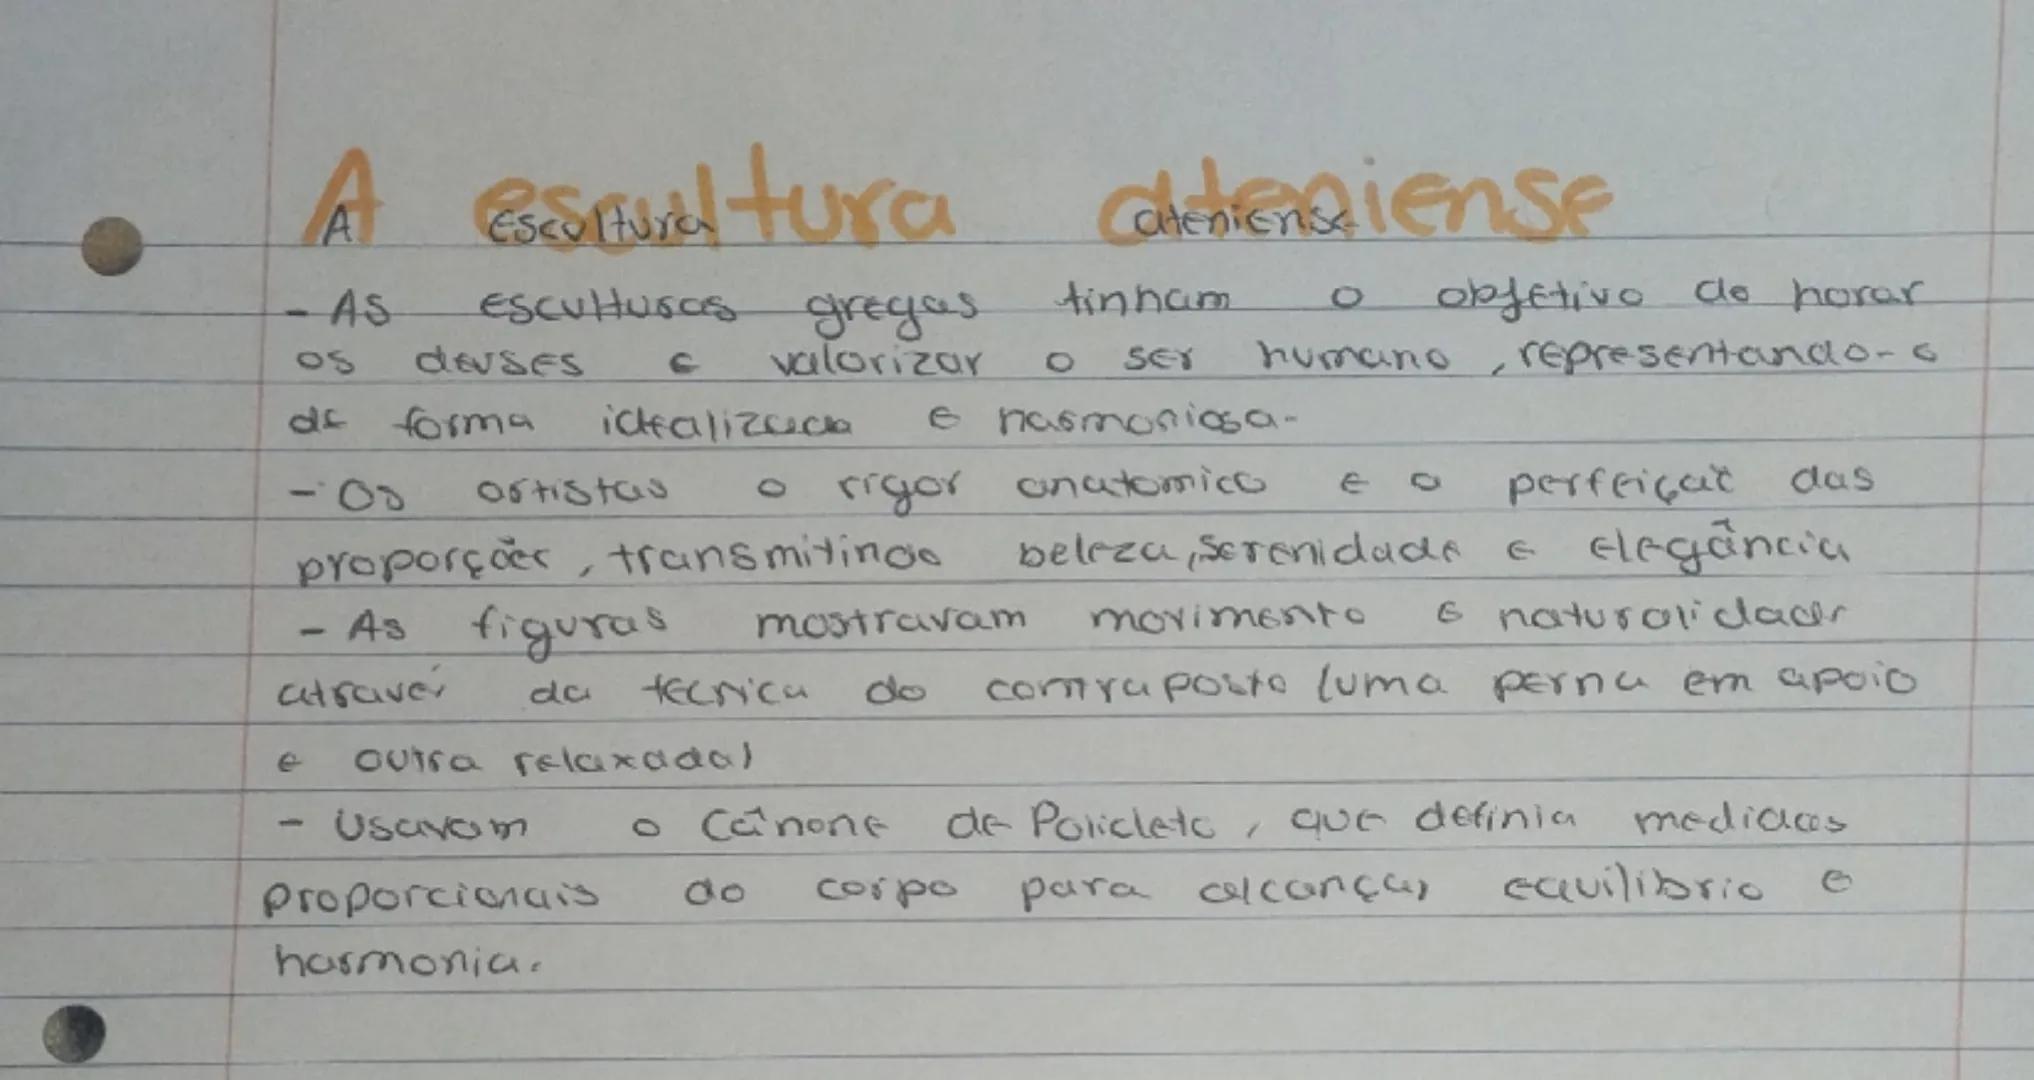 A escultura ateniense
A escultura ateniense
- As esculturas gregas tinham o objetivo de horar
os deuses e valorizar o ser humano, representando-o
de forma idealizada e harmoniosa.
- Os artistas o rigor anatomico e a perfeição das
proporções, transmitindo beleza, serenidade e elegância
- As figuras mostravam movimento e naturalidade
através da tecnica do contraposto (uma perna em apoio
e outra relaxada)
- Usavam o Cânone de Policleto, que definia medidas
proporcionais do corpo para alcançar equilibrio e
harmonia.